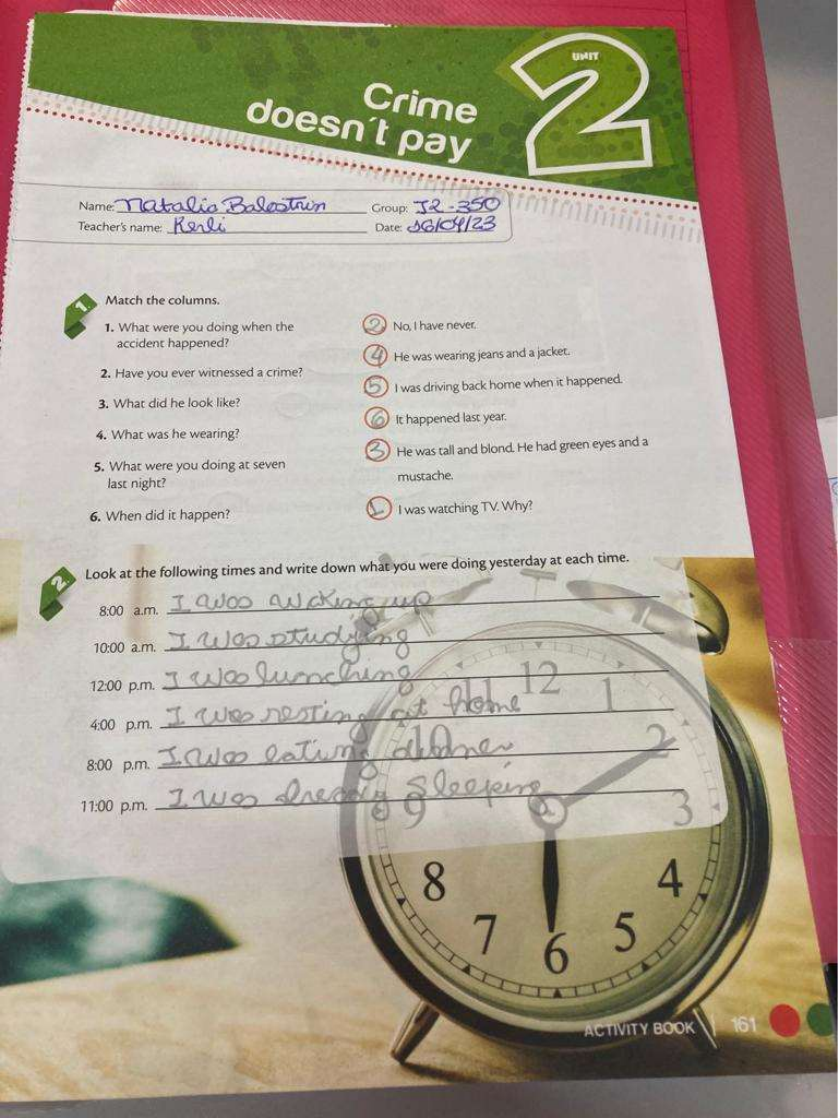 UNIT
2
Crime
doesn't pay
Name: Natalia Balestrin Group: J2-350
Teacher's name: Kerli Date: 26/04/23
1 Match the columns.
1. What were you doing when the
accident happened?
2. Have you ever witnessed a crime?
3. What did he look like?
4. What was he wearing?
5. What were you doing at seven
last night?
6. When did it happen?
2 No, I have never.
4 He was wearing jeans and a jacket.
5 I was driving back home when it happened.
6 It happened last year.
3 He was tall and blond. He had green eyes and a
mustache.
1 I was watching TV. Why?
2 Look at the following times and write down what you were doing yesterday at each time.
8:00 a.m. I was waking up
10:00 a.m. I was studying
12:00 p.m. I was lunching
4:00 p.m. I was resting at home
8:00 p.m. I was eating dinner
11:00 p.m. I was sleeping
12
1
2
3
4
5
6
7
8
9
10
11
ACTIVITY BOOK | 161